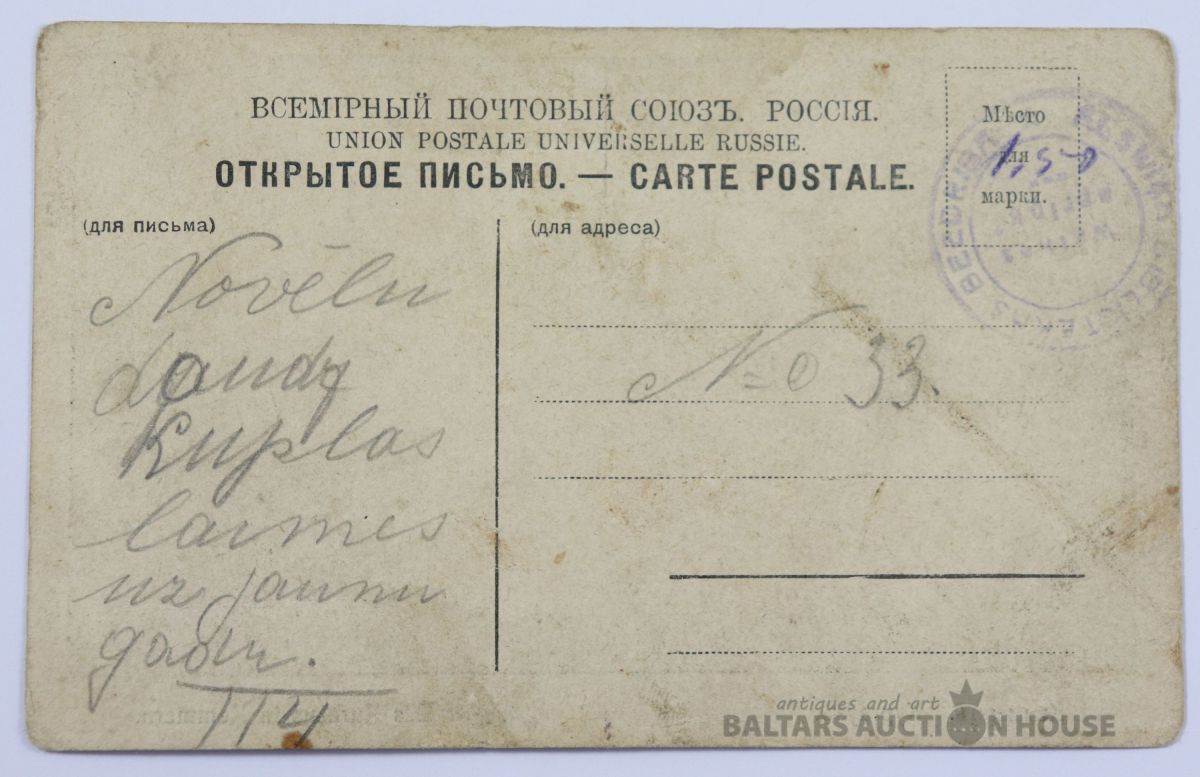 ВСЕМІРНЫЙ ПОЧТОВЫЙ СОЮЗЪ. РОССІЯ.
UNION POSTALE UNIVERSELLE RUSSIE.
ОТКРЫТОЕ ПИСЬМО. — CARTE POSTALE.
Мѣсто
для
марки.
1,50
(для письма)
Novēlu
daudz
kuplas
laimes
uz jaunu
gadu.
(для адреса)
No 33.
antiques and art
BALTARS AUCTION HOUSE